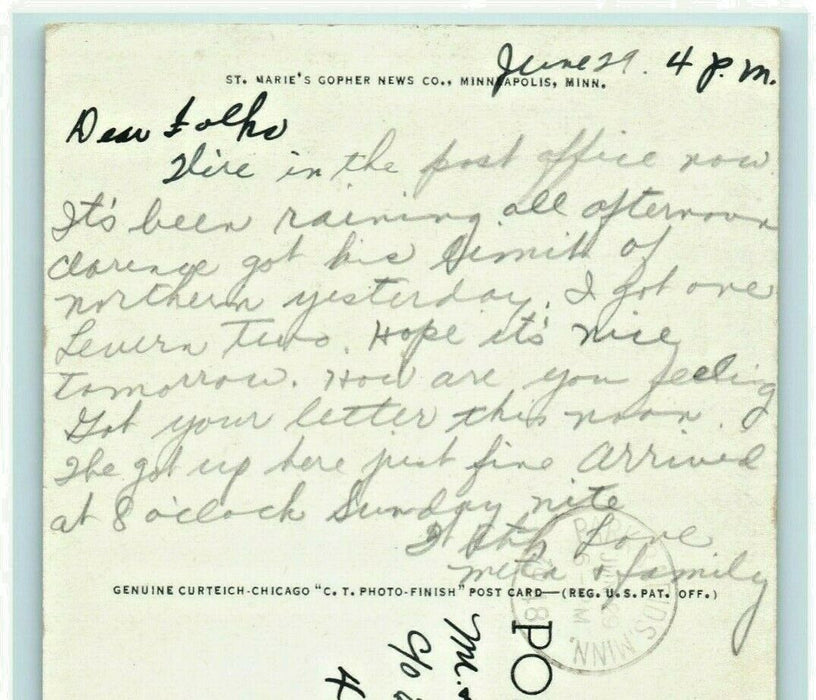 ST. MARIE'S GOPHER NEWS CO., MINNEAPOLIS, MINN.
June 29. 4 P.M.
Dear Folks
Here in the post office now
It's been raining all afternoon
Clarence got his limit of
northern yesterday. I got one
Levern two. Hope it's nice
tomorrow. How are you feeling
Got your letter this noon.
We got up here just fine Arrived
at 8 o'clock Sunday nite
With Love
Meta & family
GENUINE CURTEICH-CHICAGO "C. T. PHOTO-FINISH" POST CARD—(REG. U. S. PAT. OFF.)
MINN.
PO